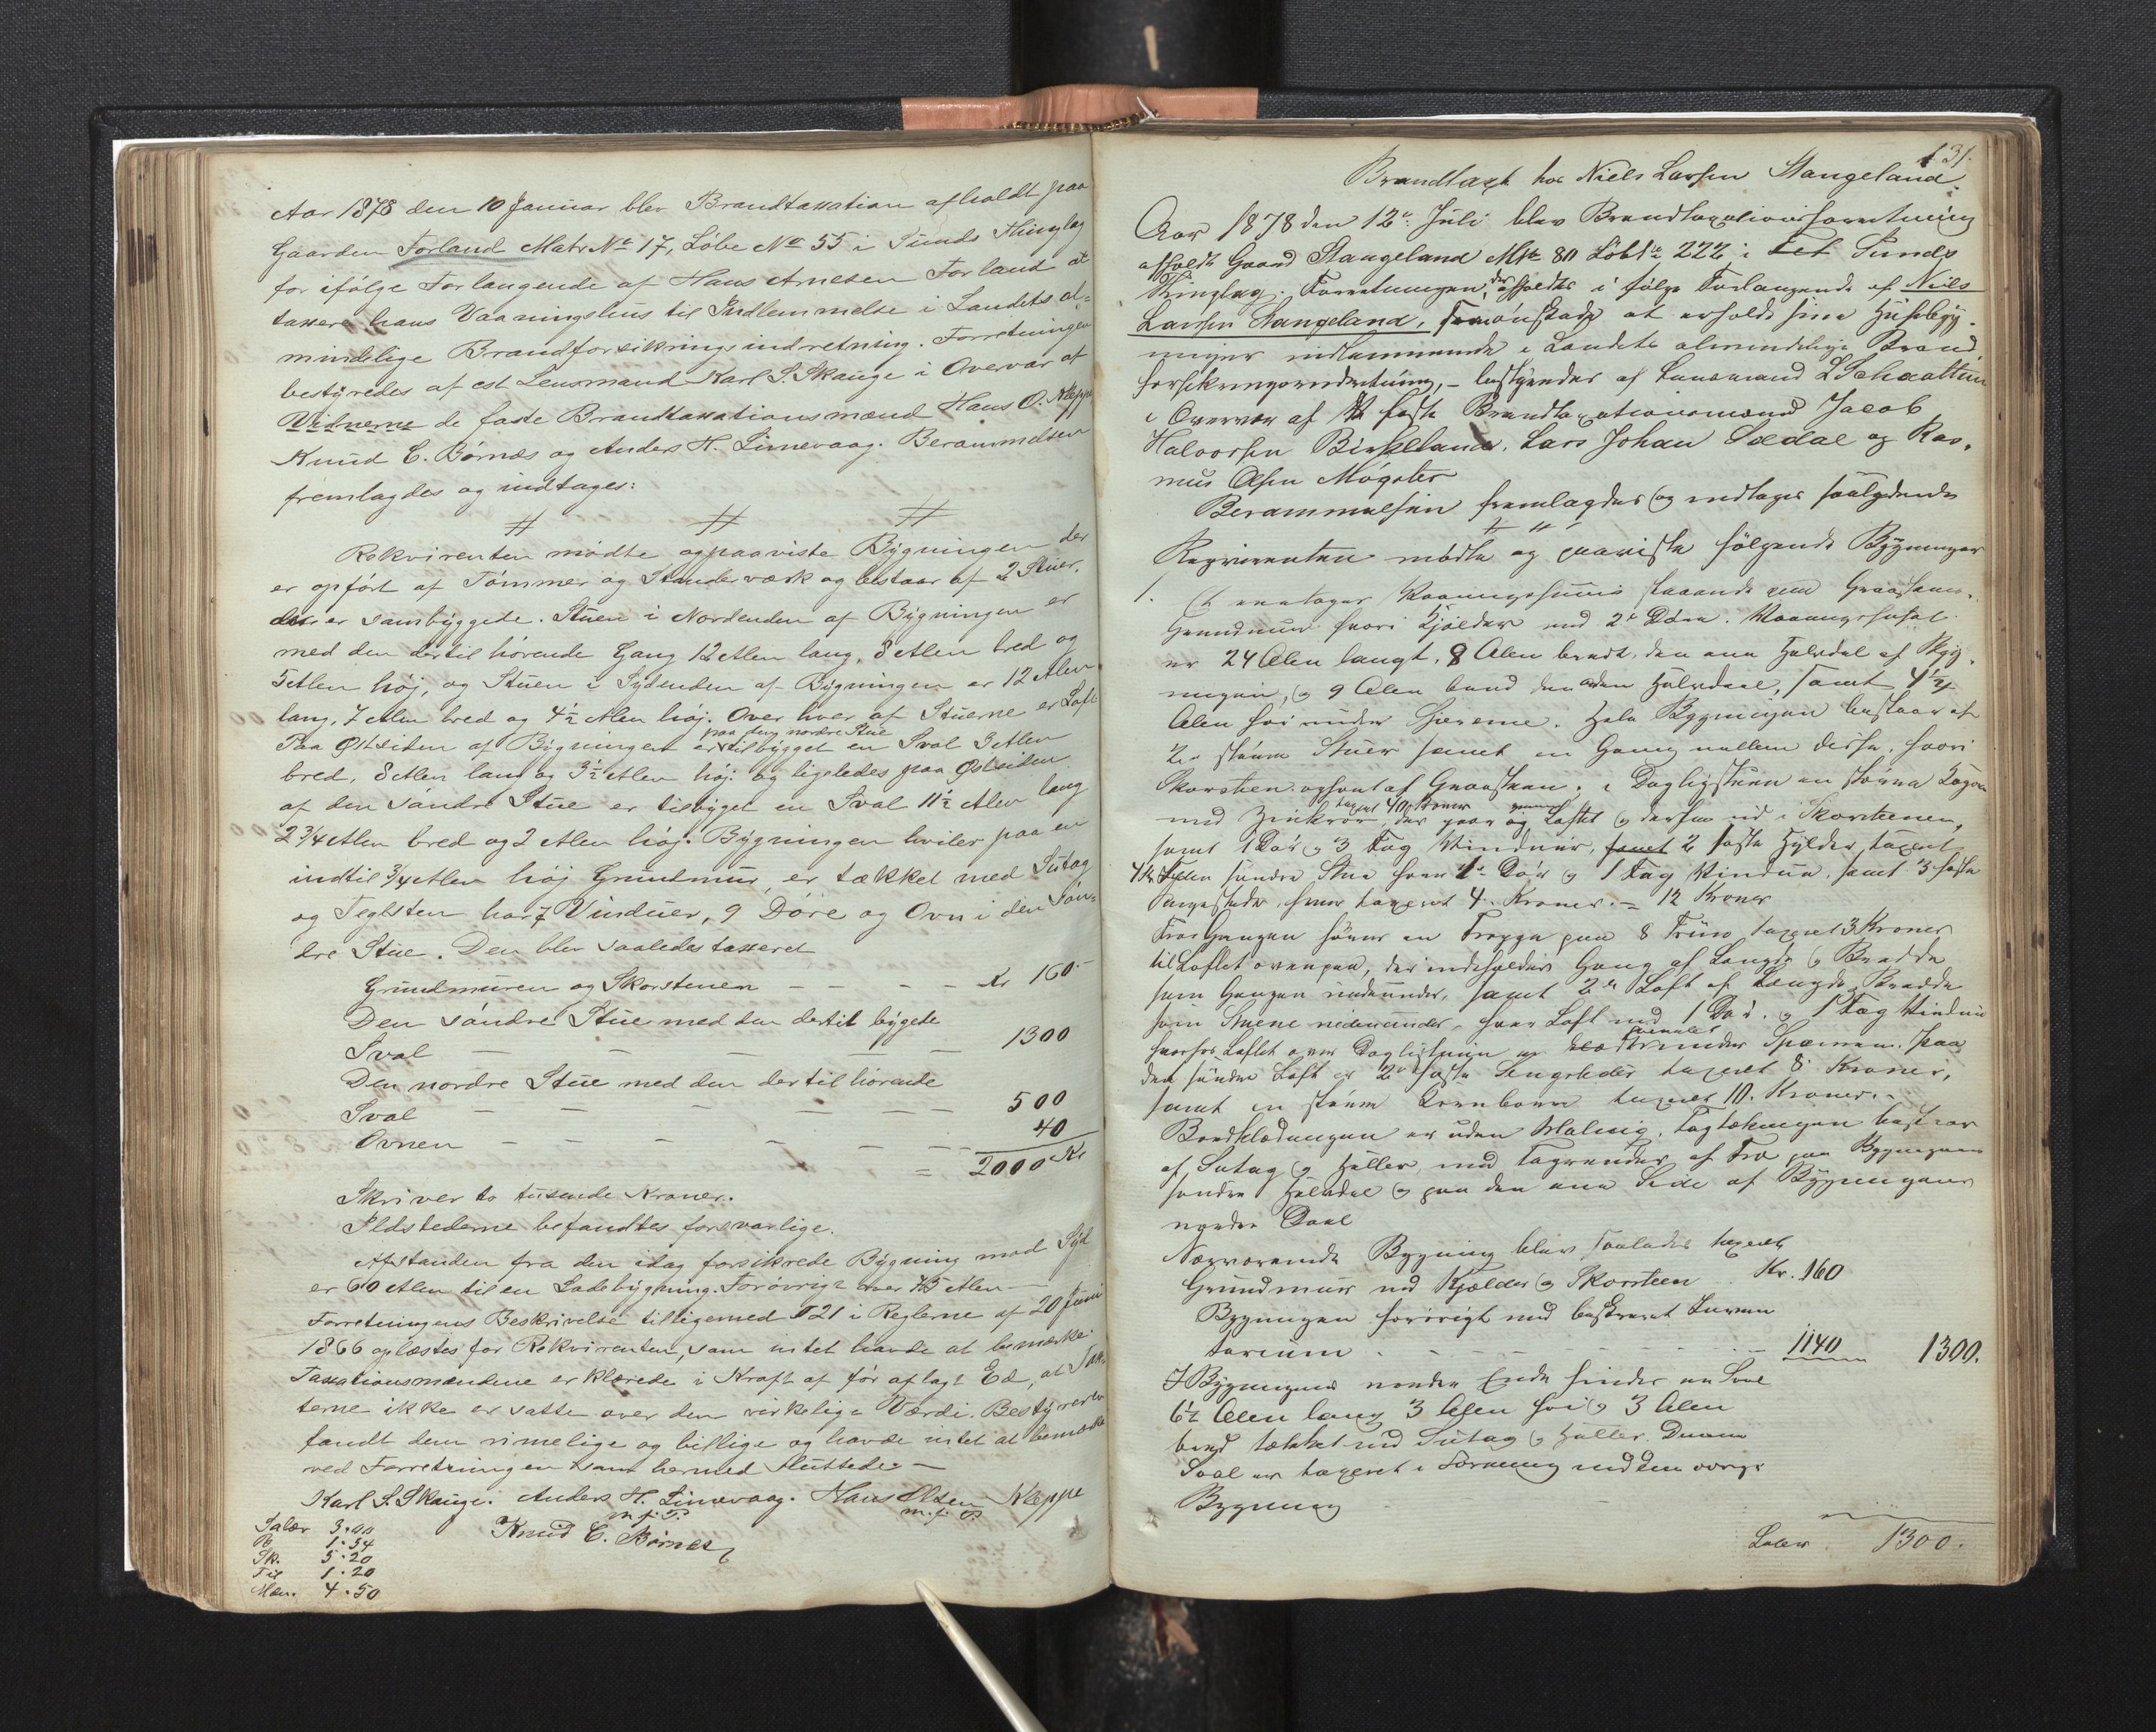 Aar 1878 den 10 Januar blev Brandtaxation afholdt paa
Gaarden Forland Matr No 17, Løbe No 55 i Sunds Thinglag
for ifølge Forlangende af Hans Arnesen Forland at
taxere hans Vaaningshus til Indlemmelse i Landets al-
mindelige Brandforsikringsindretning. Forretningen
bestyredes af cst Lensmand Karl S. Skauge i Overvær af
Vidnerne de faste Brandtaxationsmænd Hans O. Kleppe
Knud C. Børnæs og Anders H. Limevaag. Berammelsen
fremlagdes og indtages:
# # #
Rekvirenten mødte og paaviste Bygningen der
er opført af Tømmer og Stenderværk og bestaar af 2 Stuer,
der er sambyggede. Stuen i Nordenden af Bygningen er
med den dertil hørende Gang 12 Alen lang, 8 Alen bred og
5 Alen høj, og Stuen i Sydenden af Bygningen er 12 Alen
lang, 7 Alen bred og 4½ Alen høj. Over hver af Stuerne er Loft
paa den nordre Stue
Paa Østsiden af Bygningen er tilbygget en Sval 3 Alen
bred, 8 Alen lang og 3½ Alen høj og ligeledes paa Østsiden
af den søndre Stue er tilbyget en Sval 11½ Alen lang
2¾ Alen bred og 2 Alen høj. Bygningen hviler paa en
indtil ¾ Alen høj Grundmur, er tækket med Sutag
og Teglsten har 7 Vinduer, 9 Døre og Ovn i den Søn-
dre Stue. Den blev saaledes taxeret
Grundmuren og Skorstenen - - - - Kr 160 -
Den søndre Stue med den dertil bygede
Sval - - - - - 1300
Den nordre Stue med den dertil hørende
Sval - - - - - - 500
Ovnen - - - - - - 40
= 2000 Kr
Skriver to tusende Kroner.
Ildstederne befandtes forsvarlige.
Afstanden fra den idag forsikrede Bygning mod Syd
er 60 Alen til en Ladebygning. Forøvrigt over 75 Alen -
Forretningens Beskrivelse tilligemed § 21 i Reglerne af 20 Juni
1866 oplæstes for Rekvirenten, som intet havde at bemærke.
Taxationsmændene erklærede i Kraft af før aflagt Ed, at Tax-
terne ikke er satte over den virkelige Værdi. Bestyreren
fandt dem rimelige og billige og havde intet at bemærke
ved Forretningen som hermed sluttedes -
Karl S. Skauge. Anders H. Limevaag. Hans Olsen Kleppe
m. f. P. m. f. P.
Knud C. Børnes
Salær 3.00
1.54
Sk. 5.20
Til 1.20
Mæn. 4.50
131.
Brandtaxt hos Niels Larsen Stangeland.
Aar 1878 den 12te Juli blev Brandtaxationsforretning
afholdt Gaard Stangeland Mtr 80 Løbe 222 i Sunds
Thinglag. Forretningen, der afholdtes i følge Forlangende af Niels
Larsen Stangeland, som ønskede at erholde sine Husbyg-
ninger indlemmede i Landets almindelige Brand-
forsikringsindretning, - bestyredes af Lensmand L Schaattun
i Overvær af faste Brandtaxationsmænd Jacob
Halvorsen Birkeland, Lars Johan Sædal og Ras-
mus Olsen Møgster
Berammelsen fremlagdes og indtages saalydende
# "
Reqvirenten mødte og paaviste følgende Bygninger
1. Et enetages Vaaningshuus staaende paa Graasteens-
Grundmuur hvori Kjælder med 2de Døre. Vaaningshuset
er 24 Alen langt, 8 Alen bredt, den ene Halvdel af Byg-
ningen, og 9 Alen bred den anden Halvdeel, samt 4½
Alen høi under Sperrene. Hele Bygningen bestaar af
2de større Stuer samt en Gang mellem disse, hvori
Skorsten opført af Graasteen; i Dagligstuen en større
taxeret 40 Kroner gjennem
med Zinkrør, der gaar og Loftet og derfra ud i Skorstenen,
samt 1 Dør og 3 Fag Vinduer, samt 2 faste Hylder taxeret
4 Kr. I den søndre Stue hver 1 Dør og 1 Fag Vinduer, samt 3 faste
Sengesteder, hver taxeret 4 Kroner = 12 Kroner
Fra Gangen fører en Trappe paa 8 Trin taxeret 3 Kroner
til Loftet ovenpaa, der indeholder Gang af Længde og Bredde
som Gangen nedenunder, samt 2de Loft af Længde Bredde
som Stuene nedenunder, hver Loft med 1 Dør og 1 Fag Vindue
hvorfor Loftet over Dagligstuen er under Sperren. Paa
den søndre Loft er 2de faste Sengesteder taxeret 8 Kroner,
samt en større Kornbøre taxeret 10 Kroner. -
Bordklædningen er uden Maling, Tagtækningen bestaar
af Sutag og Heller, med Tagrender af Træ paa Bygningens
søndre Halvdel og paa den ene Side af Bygningens
nordre Deel
Nærværende Bygning blev saaledes taxeret
Grundmuur med Kjælder og Skorsteen Kr. 160
Bygningen forøvrigt med beskrevet Inven-
tarium - - - - - 1140 1300.
I Bygningens nordre Ende findes en Sval
6½ Alen lang 3 Alen høi og 3 Alen
bred tækket med Sutag og Heller. Denne
Sval er taxeret i Forening med den øvrige
Bygning
Later 1300.